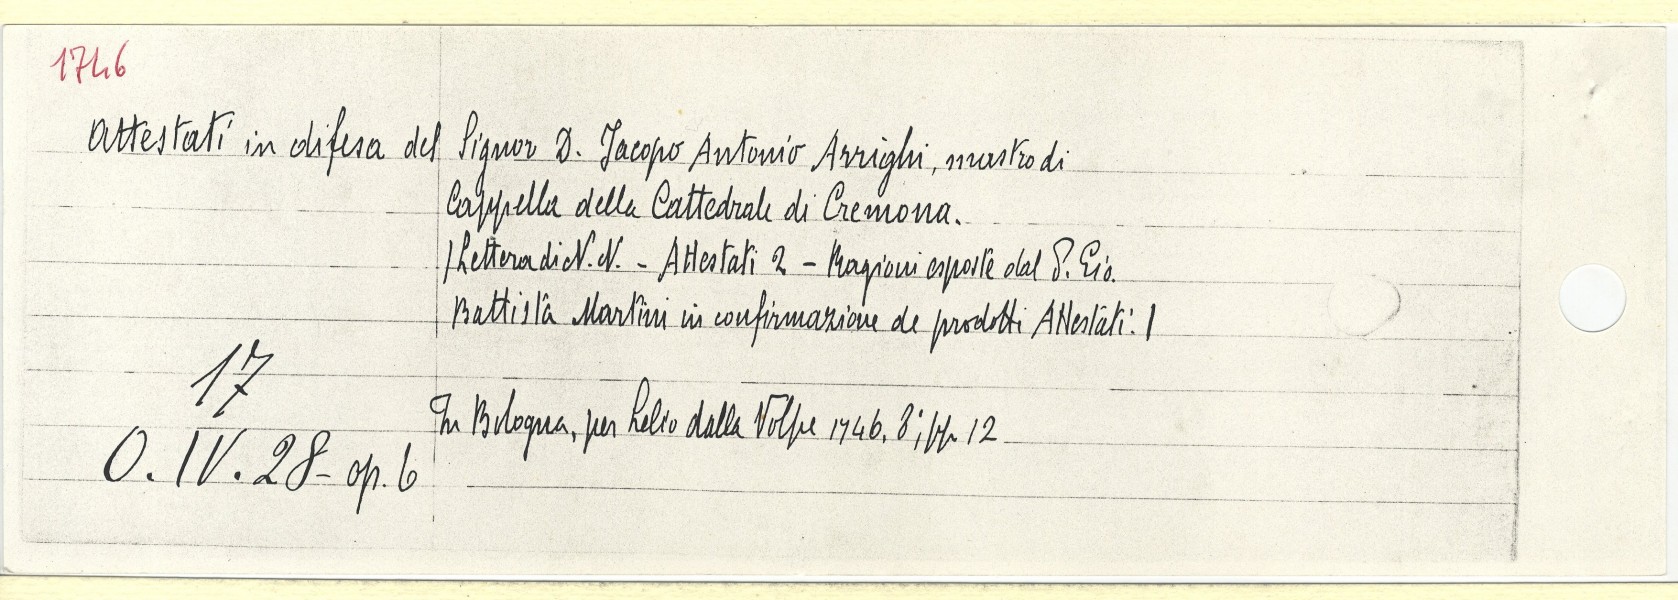 1746
Attestati in difesa del Signor D. Jacopo Antonio Arrighi, mastro di
Cappella della Cattedrale di Cremona.
/Lettera di N. N. - Attestati 2 - Ragioni esposte dal P. Gio.
Battista Martini in confirmazione de prodotti Attestati. /
17
In Bologna, per Lelio dalla Volpe 1746. 8°; pp. 12
O. IV. 28 - op. 6